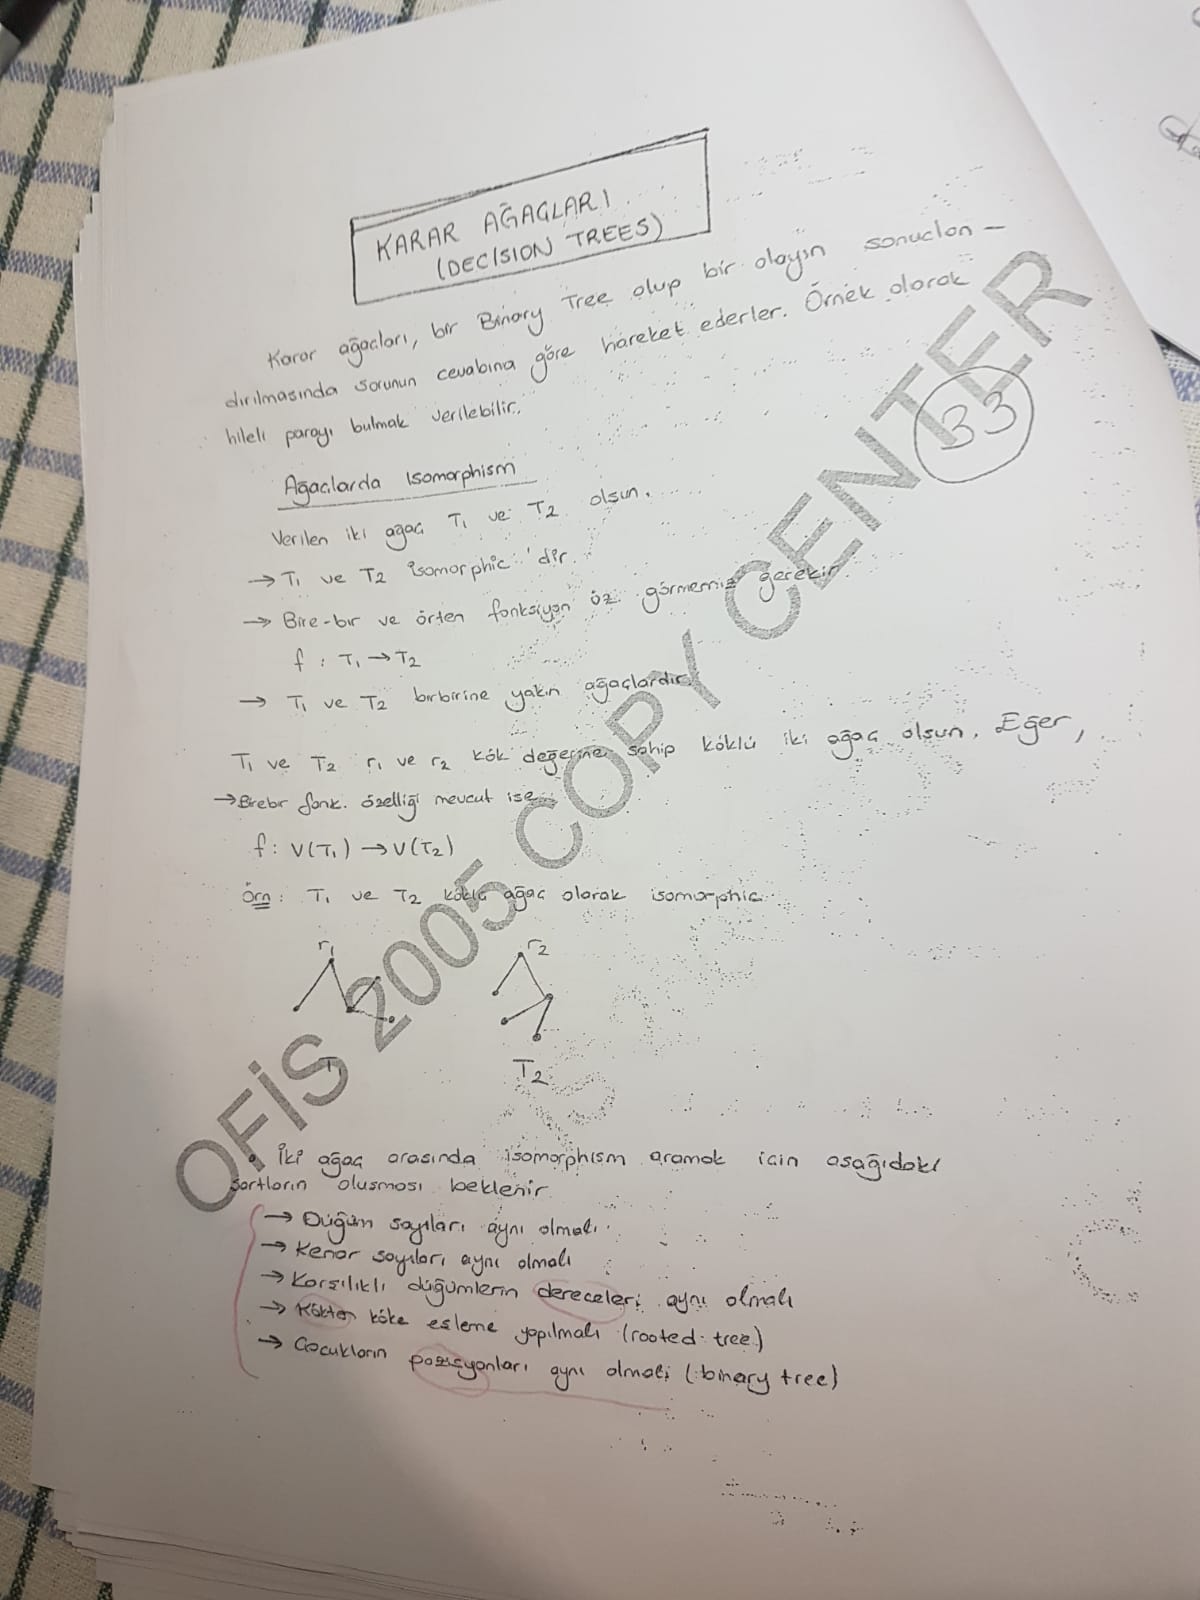 KARAR AĞAÇLARI
(DECISION TREES)
Karar ağaçları, bir Binary Tree olup bir olayın sonuclan-
dırılmasında sorunun cevabına göre hareket ederler. Örnek olarak
hileli parayı bulmak verilebilir.
33
Ağaçlarda Isomorphism
Verilen iki ağaç T1 ve T2 olsun.
→ T1 ve T2 isomorphic'dir.
→ Bire-bir ve örten fonksiyon öz. görmemiz gerekir.
f : T1 → T2
→ T1 ve T2 birbirine yakın ağaçlardır.
T1 ve T2 r1 ve r2 kök değerine sahip köklü iki ağaç olsun. Eğer,
→ Birebir fonk. özelliği mevcut ise
f: V(T1) → V(T2)
Örn: T1 ve T2 köklü ağaç olarak isomorphic
r1 r2
T2
• İki ağaç arasında isomorphism aramak için aşağıdaki
şartların oluşması beklenir
→ Düğüm sayıları aynı olmalı
→ Kenar sayıları aynı olmalı
→ Karşılıklı düğümlerin dereceleri aynı olmalı
→ Kökten köke eşleme yapılmalı (rooted tree)
→ Çocukların pozisyonları aynı olmalı (binary tree)
OFİS 2005 COPY CENTER